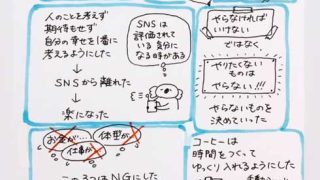 人のことを考えず
期待もせず
自分の幸せを1番に
考えるようにした
SNSから離れた
楽になった
SNSは
評価されて
いる気分に
なる時がある
やらなければ
いけない
ではなく、
やりたくない
ものは
やらない!!!
やらないものを
決めていった
お金が…
体型が
仕事が
この3つはNGにした
コーヒーは
時間をつくって
ゆっくり入れるようにした